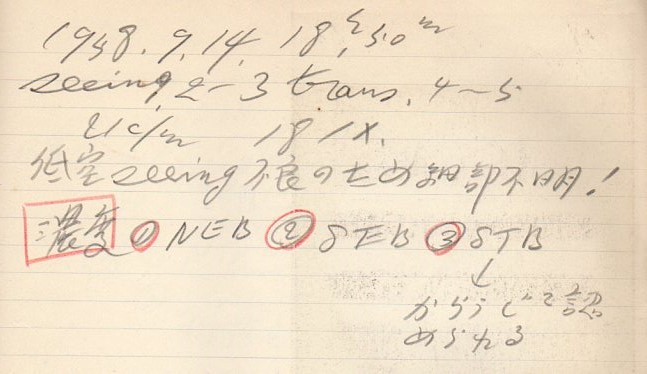 1958. 9. 14. 18h 50m
seeing, 2-3 trans. 4~5
21c/m 181X.
低空seeing不良のため細部不明!
濃度 ① NEB ② SEB ③ STB
↓
かろうじて認
められる